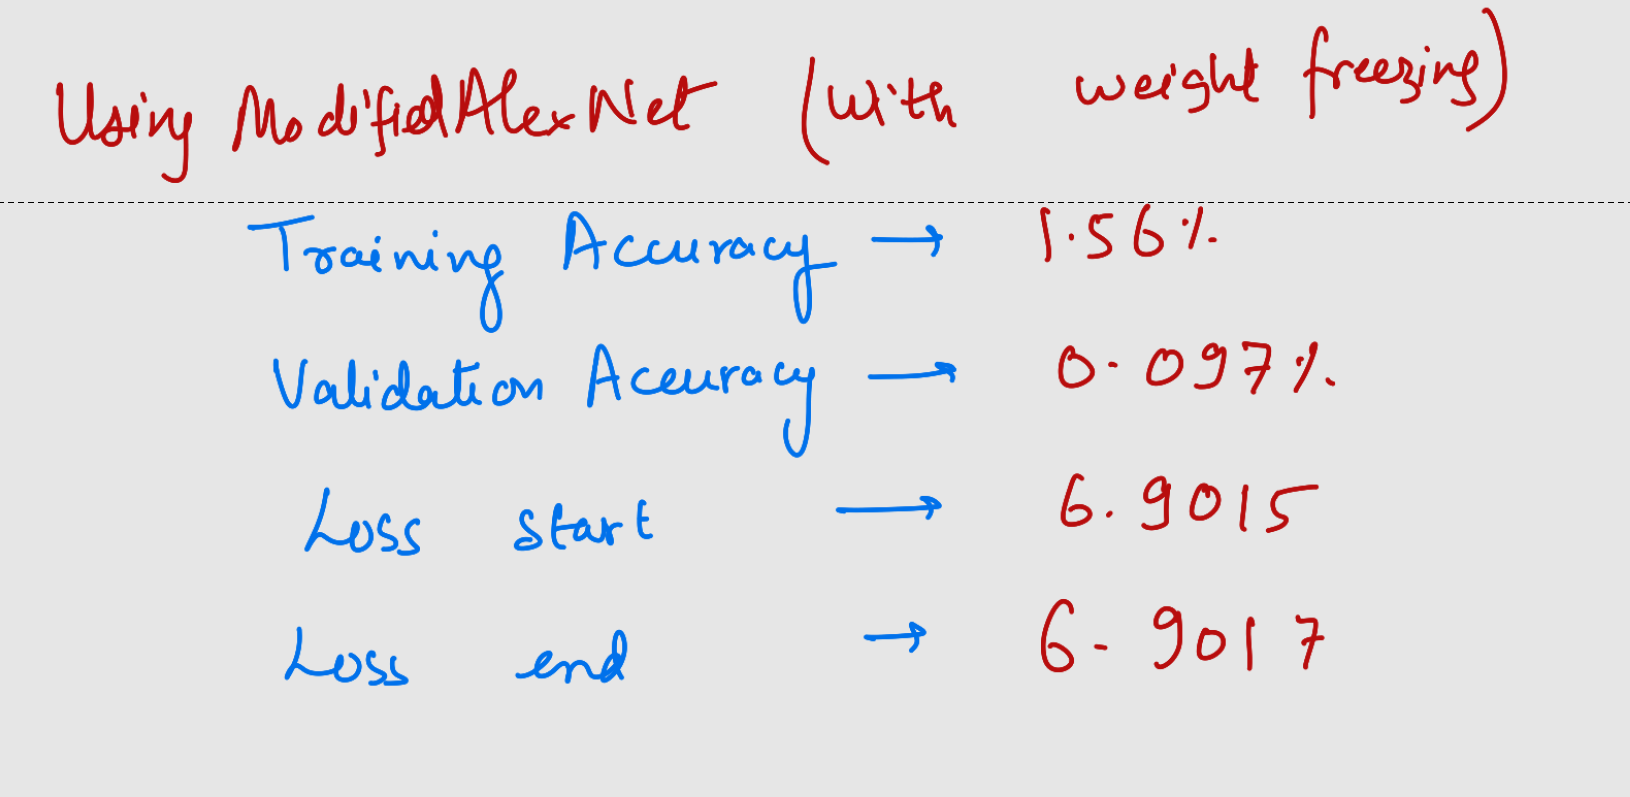 Using ModifiedAlexNet (With weight freezing)
Training Accuracy → 1.56%
Validation Accuracy → 0.097%
Loss start → 6.9015
Loss end → 6.9017